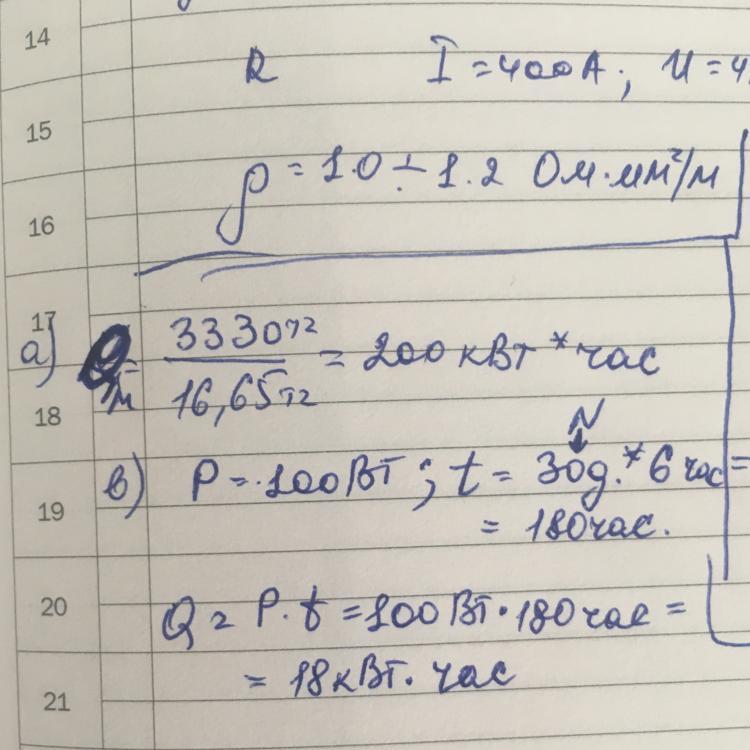 14
R I = 400 А; U = 4
15
ρ = 1.0 ÷ 1.2 Ом·мм²/м
16
17
а) Q/м = 3330тг / 16,65тг = 200 кВт * час
18
N
в) P = 100 Вт; t = 30д. * 6 час =
19
= 180 час.
20
Q = P·t = 100 Вт·180 час =
= 18 кВт. час
21